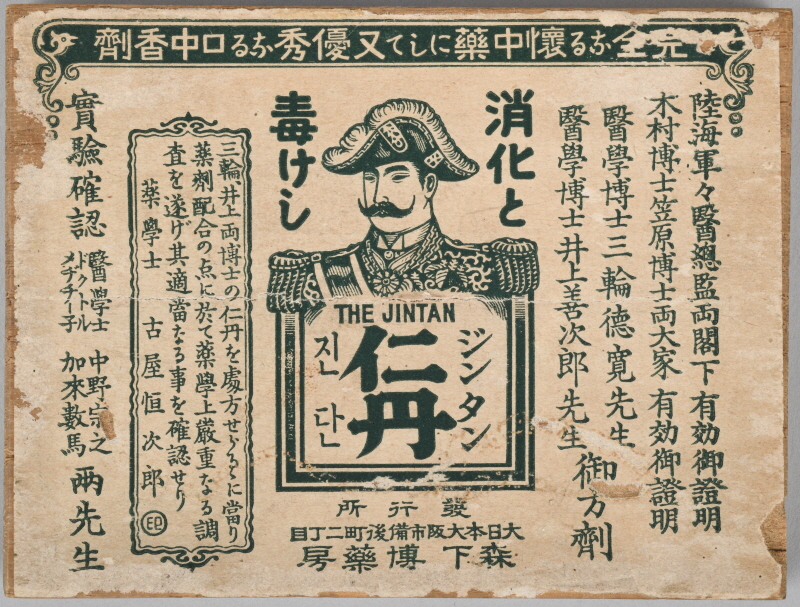 完全なる懐中薬にして又優秀なる口中香劑
陸海軍々醫總監両閣下有効御證明
木村博士笠原博士両大家有効御證明
醫學博士三輪德寛先生
醫學博士井上善次郎先生
御方劑
消化と
毒けし
THE JINTAN
ジンタン
仁丹
진단
三輪、井上両博士の仁丹を處方せらるゝに當り
薬劑配合の点に於て薬學上嚴重なる調
査を遂げ其適當なる事を確認せり
薬學士 古屋恒次郎 ㊞
實驗確認
醫學士 中野宗之
ドクトルメヂチーネ 加來數馬
両先生
發行所
大日本大阪市備後町二丁目
森下博薬房